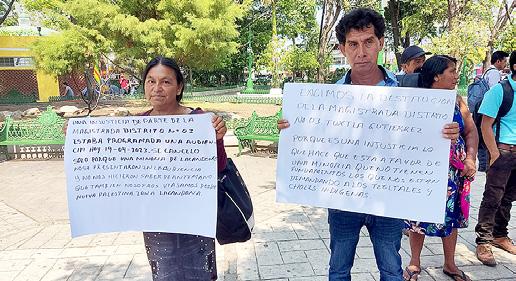 UNA INJUSTICIA DE PARTE DE LA
MAGISTRADA DISTRITO Nº 03
ESTABA PROGRAMADA UN AUDIEN
HOY 19-04-2023. SE CANCELO
SOLO PORQUE UNA MINORIA DE LACANDONES
NOSE PRESENTARON
Y NO NOS HICIERON SABER DE ANTEMANO
QUE TAMBIEN NOSOTROS VIAJAMOS DESDE
NUEVA PALESTINA ZONA LACANDONA
EXIGIMOS LA DESTITUCION
DE LA MAGISTRADA DISTATO
NO 03 TUXTLA GUTIERREZ
PORQUE ES UNA INJUSTICIA LO
QUE HACE QUE ESTA A FAVOR DE
UNA MINORIA QUE NO TIENEN
FUNDAMENTOS LOS QUE NOS ESTAN
DEMANDANDO A LOS TZELTALES Y
CHOLES INDIGENAS